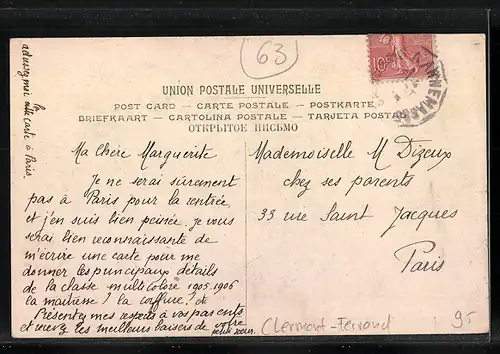 63
10c
ANNEMASSE
UNION POSTALE UNIVERSELLE
POST CARD – CARTE POSTALE – POSTKARTE
BRIEFKAART – CARTOLINA POSTALE – TARJETA POSTAL
ОТКРЫТОЕ ПИСЬМО
adressez moi la carte à Paris.
Ma Chère Marguerite
Je ne serai sûrement
pas à Paris pour la rentrée
et j'en suis bien peinée. je vous
serai bien reconnaissante de
m'écrire une carte pour me
donner les principaux détails
de la classe multicolore 1905-1906
la maîtresse? la coiffure?
Présentez mes respects à vos parents
et recevez les meilleurs baisers de votre
petite soeur.
Mademoiselle M Dizeux
chez ses parents
33 rue Saint Jacques
Paris
Clermont-Ferrand
95